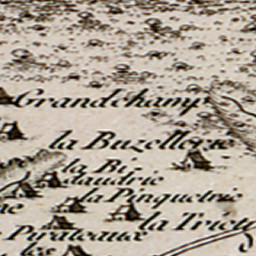 Grandchamp
la Buzellerie
la Bi
laudrie
la Pinquetrie
la Tricu
Pirateaux